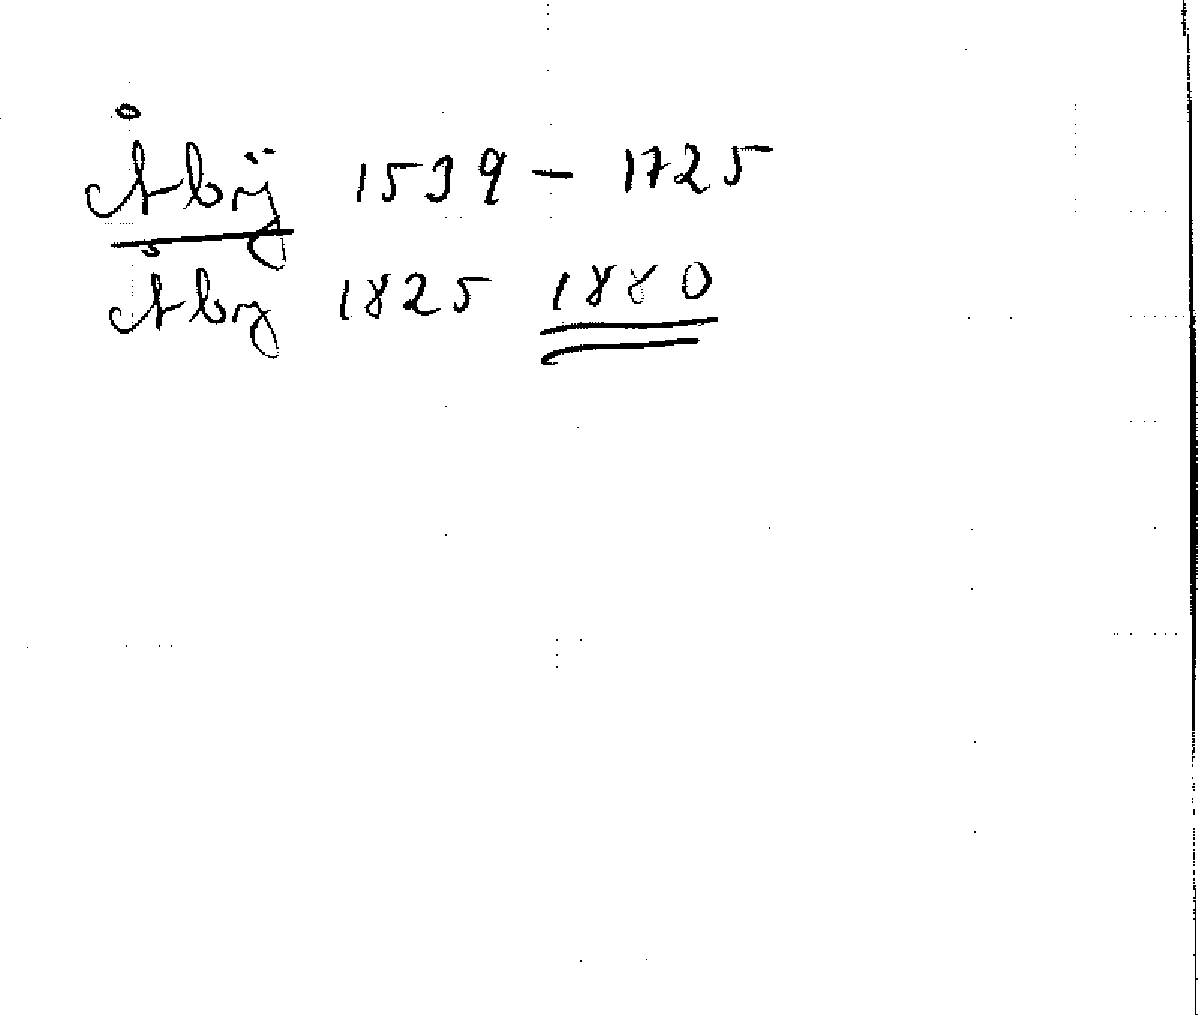 Åbÿ 1539 - 1725
Åby 1825 1880